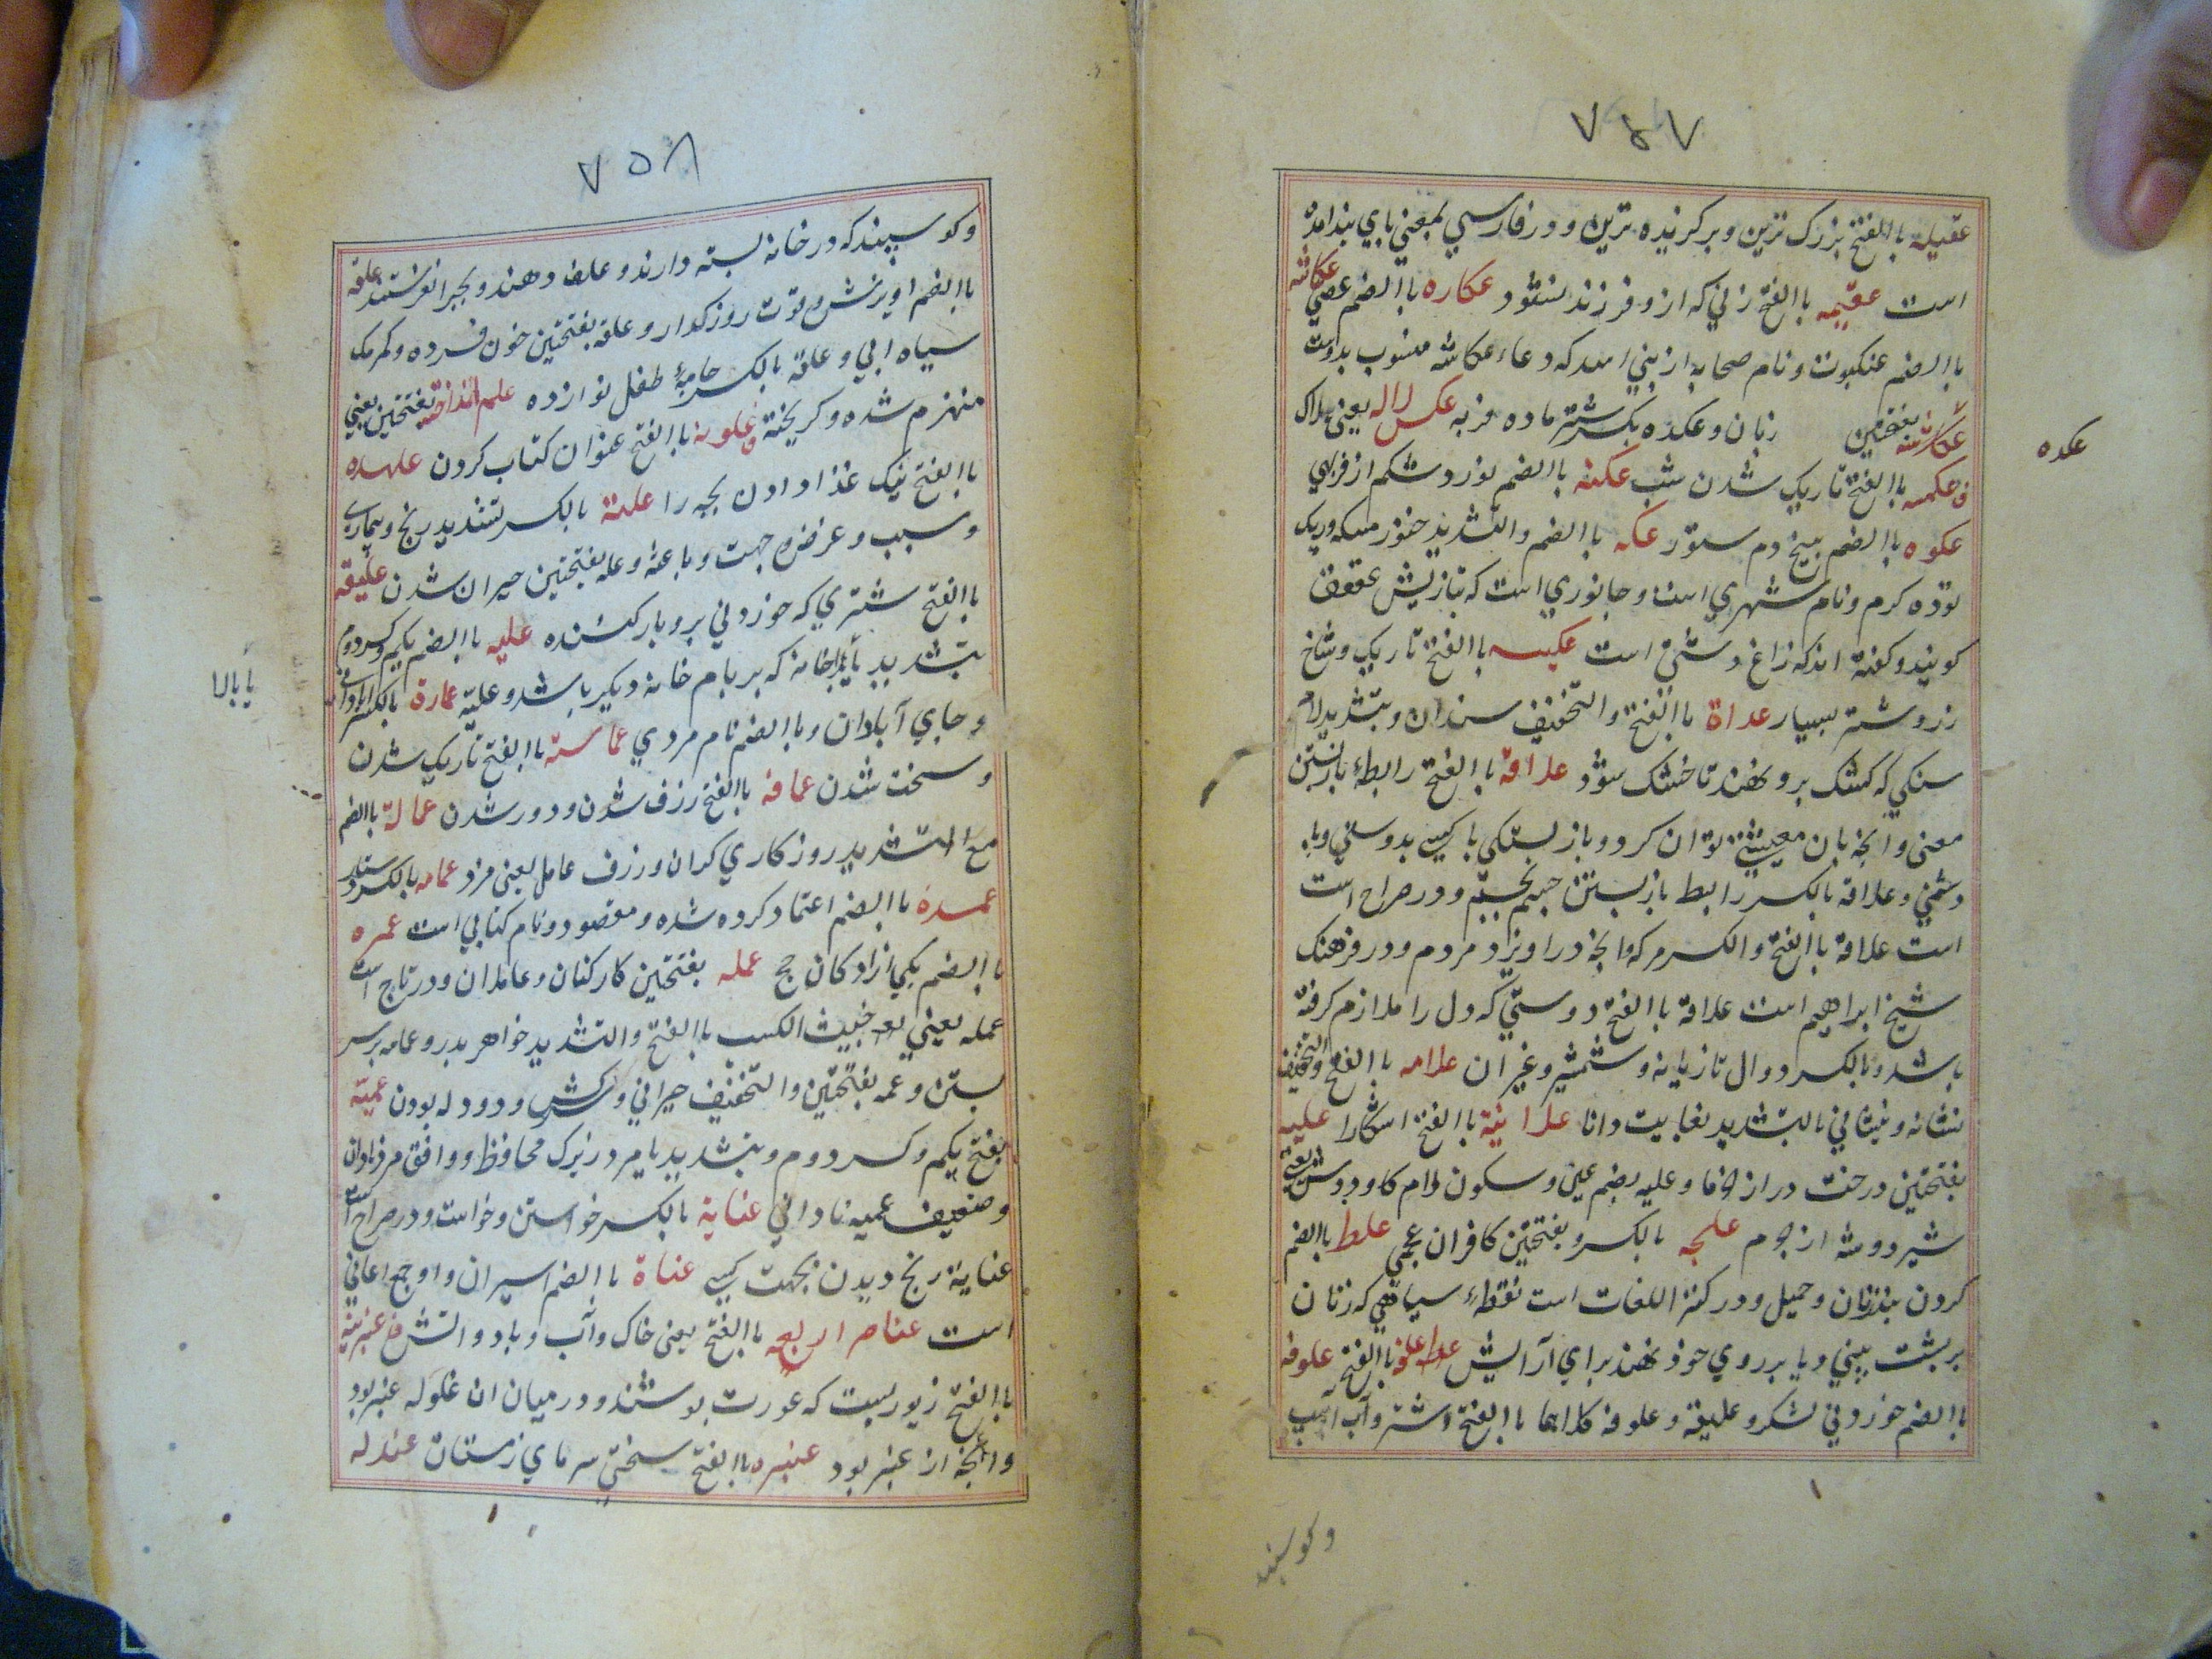 ۷۵۷
عقیلة باالفتح بزرک ترین و برکرزیده ترین و در فارسي بمعني پاي بند امده
است عقیمه باالفتح زني که ازو فرزند نشود عکاره باالضم عصي عکاشه
باالضم عنکبوت و نام صحابه از بني اسد که دعاء عکاشه منسوب بدوست
عکاشه بفتحتین زبان و عکده بکسر شتر ماده فربه عکس لاله یعني
عکده
عکمسه باالفتح تاریک شدن شب عکنه باالضم نورد شکم از فربهي
عکوه باالضم بیخ دم ستور عکه باالضم والتشدید خنور مسکه وریک
توده کرم و نام شهري است و جانوري است که بتازیش عقعق
کویند و کفته اند که زاغ دشتي است عکیسه باالفتح تاریک و شاخ
رز و شتر بسیار علاة باالفتح والتخفیف سندان و بتشدید لام
سنکي که کشک برو نهند تا خشک شود علاقة باالفتح رابطهٔ بازبستن
معنی وانچه بان معیشتي توان کرد و باز بستکي با کسي بدوستي و با
دشمني و علاقه بالکسر رابط بازبستن جسم بجسم و در صراح است
است علاقة باالفتح والکسر مرکه وانچه دراویزد مردم و در فرهنک
شیخ ابراهیم است علاقة باالفتح دوستي که دل را ملازم کرفته
باشد و بالکسر دوال تازیانه و شمشیر و غیر ان علامه باالفتح والتخفیف
نشانه و نشاني بالتشدید بغایت دانا علانیة باالفتح اشکارا علبه
بفتحتین درخت دراز خرما و علبه بضم عین و سکون لام کاو دوش یعني
شیر دوشه از چرم علجه بالکسر و بفتحتین کافران عجمي علطه باالضم
کردن بند زنان و حمیل و در کنز اللغات است نقطهٔ سیاهي که زنان
بر پشت بیني و یا بر روي خود نهند براي آرایش علوفه باالفتح علوفه
باالضم خوردني لشکر و علیقه و علوفه کلاهما باالفتح شتر و آب اسب
و کوسپند
۷۵۸
و کوسپند که در خانه بسته دارند و علف دهند و بچرا نفرستند علقه
باالضم اویزش و قوت روزکذار و علقه بفتحتین خون فسرده و کرمک
سیاه ابي و علقه بالکسر جامهٔ طفل نوازاده علم انداخته بفتحتین یعني
منهزم شده و کریخته علونه باالفتح عنوان کتاب کردن علهده
باالفتح نیک غذا دادن بچه را علة بالکسر تشدید رنج و بیماري
و سبب و عرض و جهت و باعث و عله بفتحتین حیران شدن علیقه
باالفتح شتري که خوردني برو بار کننده علیه باالضم یکم و کسر دوم
بتشدید یا بالاخانه که بر بام خانه دیکر باشد و علیّه عمارة بالکسر ابادانی
یا بالا
و جاي آبادان و باالضم نام مردي عماسة باالفتح تاریک شدن
و سخت شدن عماقه باالفتح ژرف شدن و دور شدن عمالة باالضم
مع التشدید روز کاري کران و رزق عامل یعني مزد عمامه بالکسر دستار
عمدة باالضم اعتماد کرده شده و مقصود و نام کتابي است عمره
باالضم یکي ازارکان حج عمله بفتحتین کارکنان و عاملان و در تاج است
عمله یعني خبیث الکسب باالفتح والتشدید خواهر پدر و عمامه بر سر
بستن و عمه بفتحتین والتخفیف حیراني و سرکشي و دودله بودن عمیّه
بفتح یکم و کسر دوم و بتشدید یا مرد زیرک محافظ و واقف مرد نادان
و ضعیف عمیه ناداني عنایة بالکسر خواستن و خواست و در صراح است
عنایة رنج دیدن بجهت کسي عناة باالضم اسیران و او جمع عاني
است عناصر اربعه باالفتح یعني خاک و آب و باد و اتش عنبرینه
باالفتح زیوریست که عورت پوشند و در میان ان غلوله عنبر بود
وانچه از عنبر بود عنبره باالفتح سختي سرماي زمستان عندله